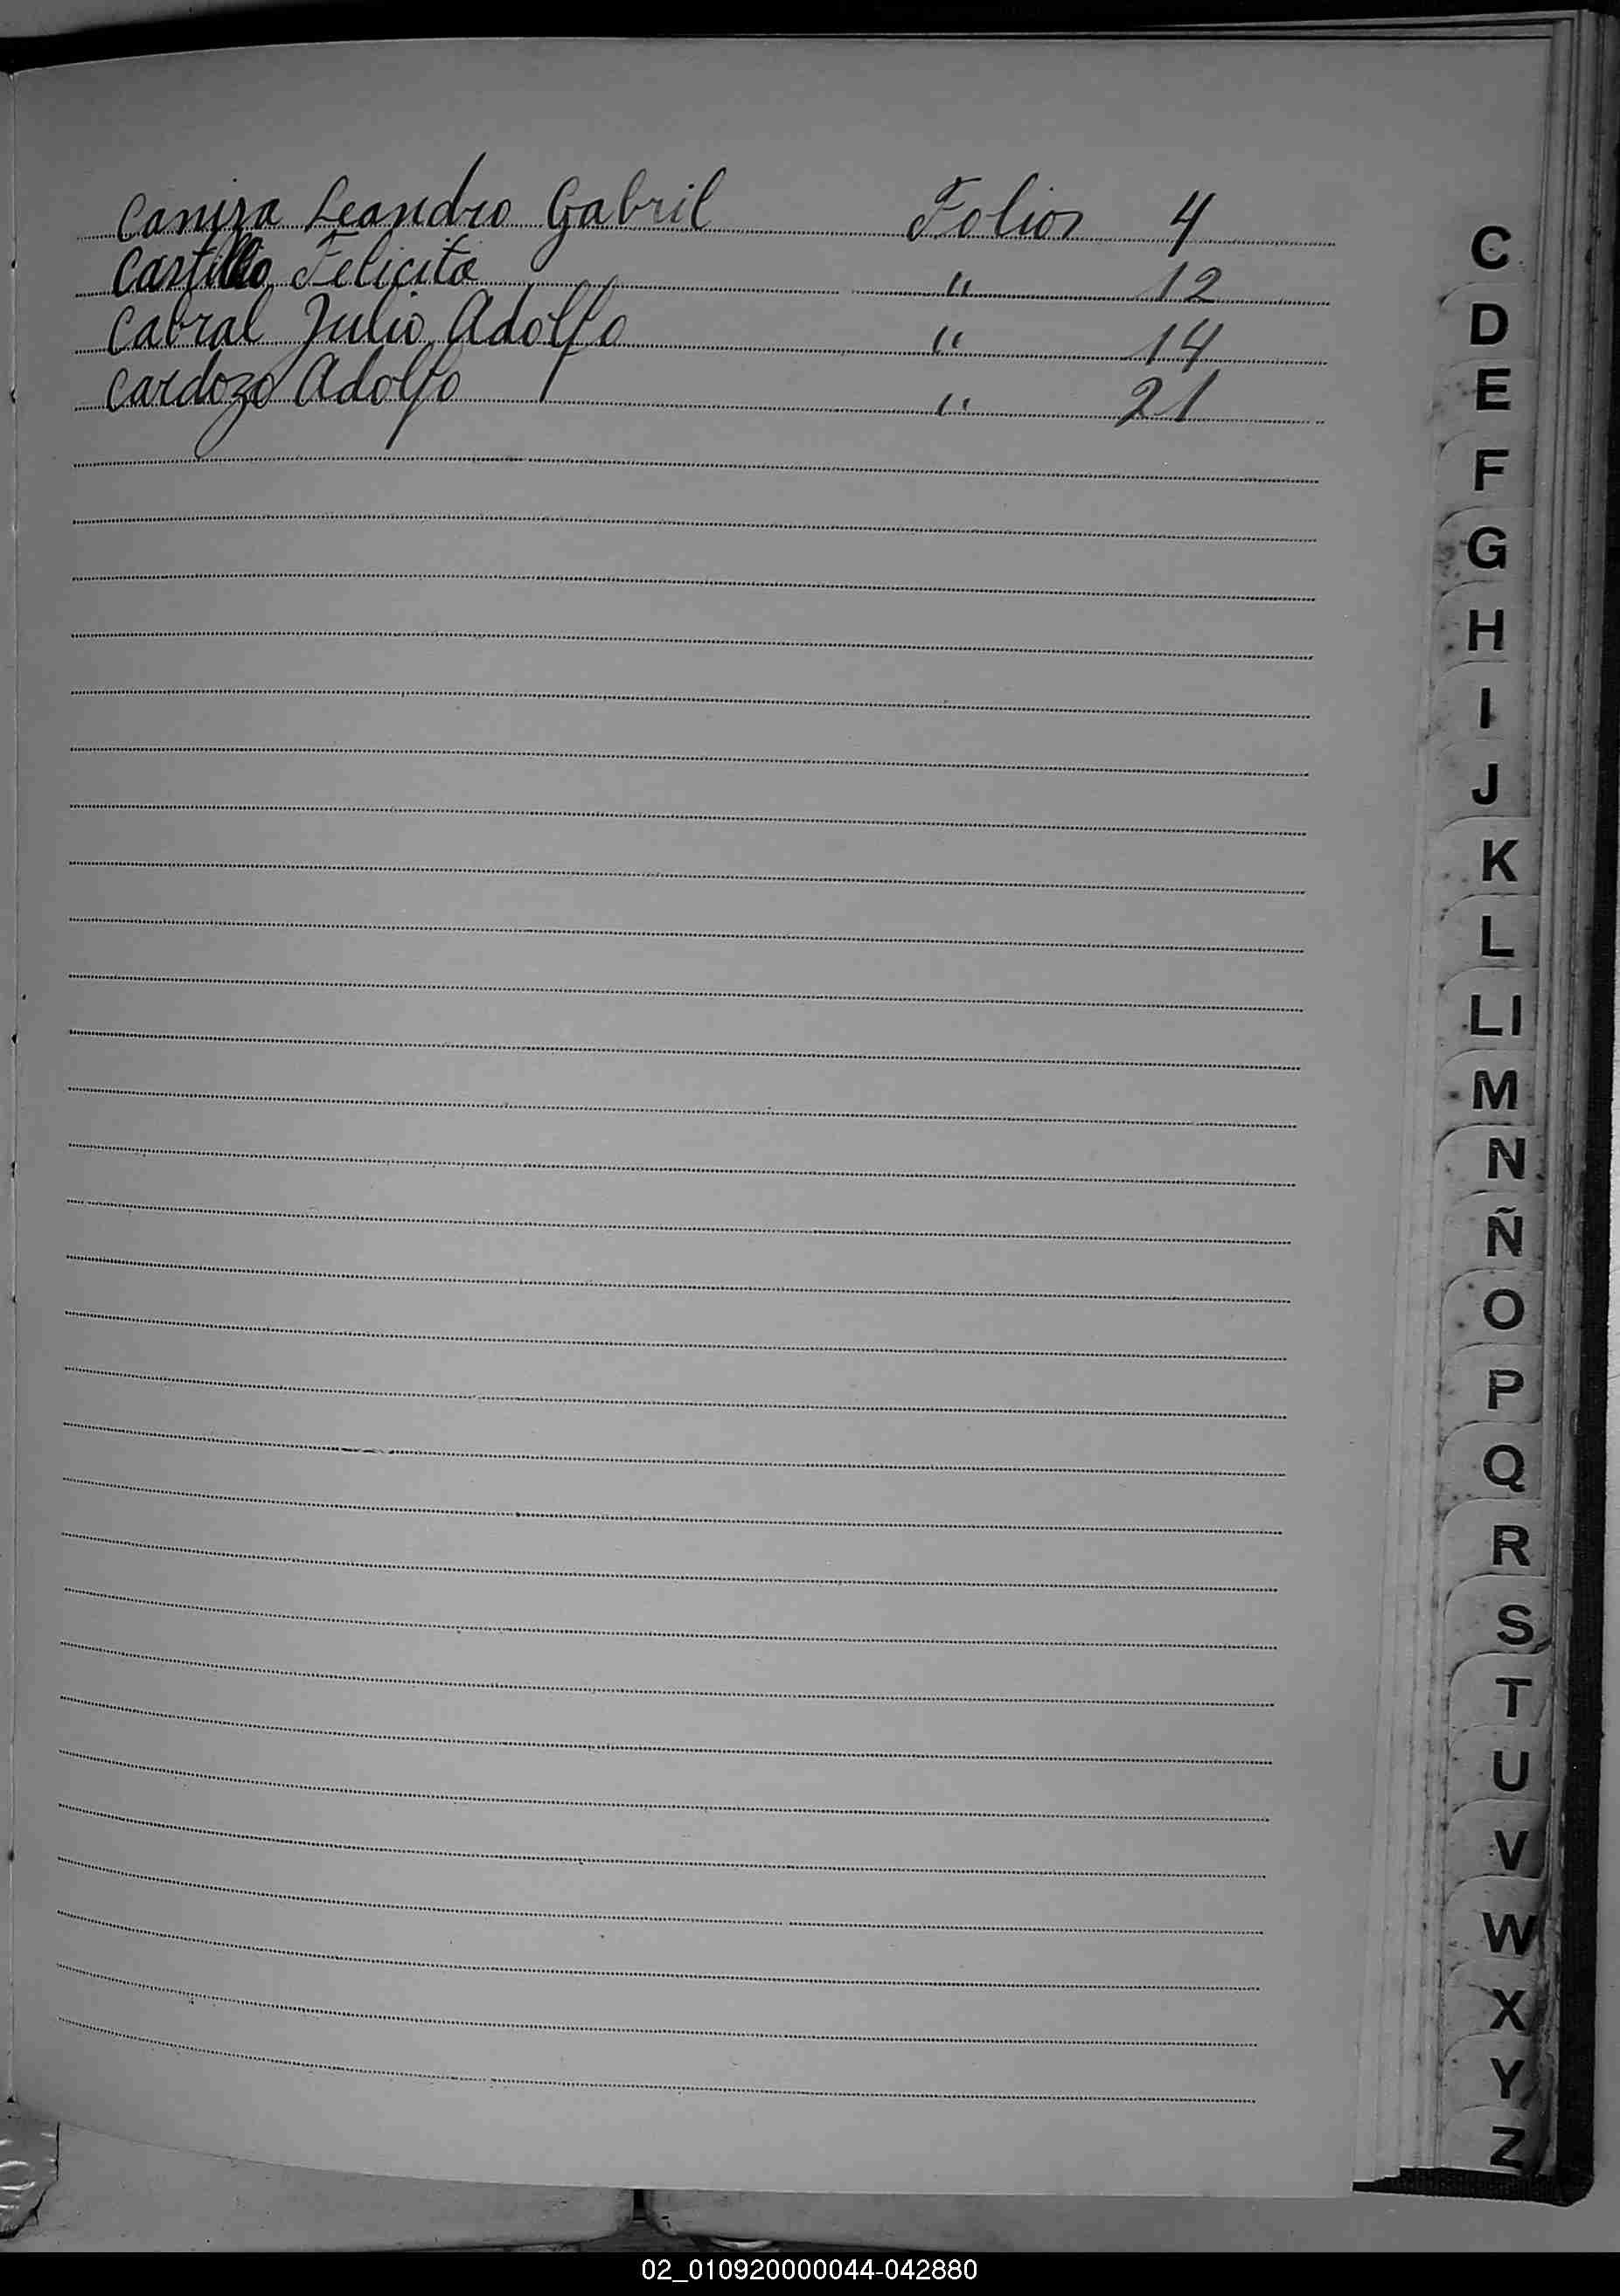 Caniza Leandro Gabril Folios 4
Castillo Felicita " 12
Cabral Julio Adolfo " 14
Cardozo Adolfo " 21
C
D
E
F
G
H
I
J
K
L
Ll
M
N
Ñ
O
P
Q
R
S
T
U
V
W
X
Y
Z
02_010920000044-042880